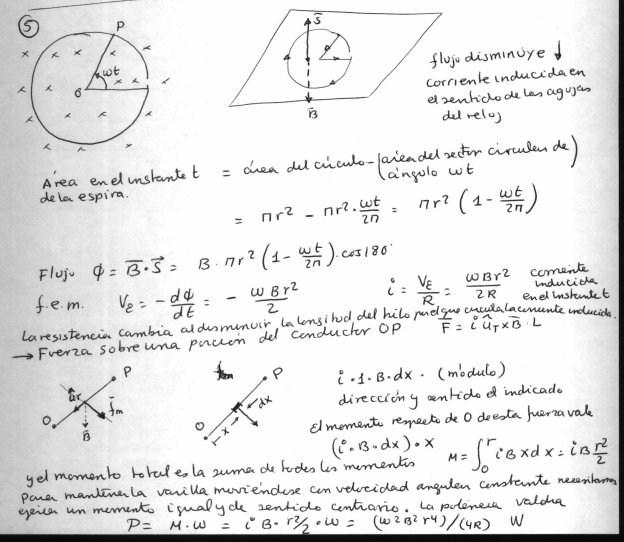 5
P
ωt
O
S
B
flujo disminuye ↓
corriente inducida en
el sentido de las agujas
del reloj
Area en el instante t = área del círculo - (área del sector circular de
de la espira. ángulo ωt)
= πr² - πr² · ωt/2π = πr² (1 - ωt/2π)
Flujo Φ = B · S = B · πr² (1 - ωt/2π) · cos180°
f.e.m. Vε = - dΦ/dt = - ωBr²/2 i = Vε/R = ωBr²/2R corriente inducida en el instante t
La resistencia cambia al disminuir la longitud del hilo por el que circula la corriente inducida.
→ Fuerza sobre una porción del conductor OP F = i û_T × B · L
P
û_T
f_m
O
B
P
dx
x
O
i · 1 · B · dx · (módulo)
dirección y sentido el indicado
El momento respecto de O de esta fuerza vale
(i · B · dx) · x M = ∫₀^r i B x dx = i B r²/2
y el momento total es la suma de todos los momentos
Para mantener la varilla moviéndose con velocidad angular constante necesitamos
ejercer un momento igual y de sentido contrario. La potencia valdrá
P = M · ω = i B · r²/2 · ω = (ω²B²r⁴)/(4R) W